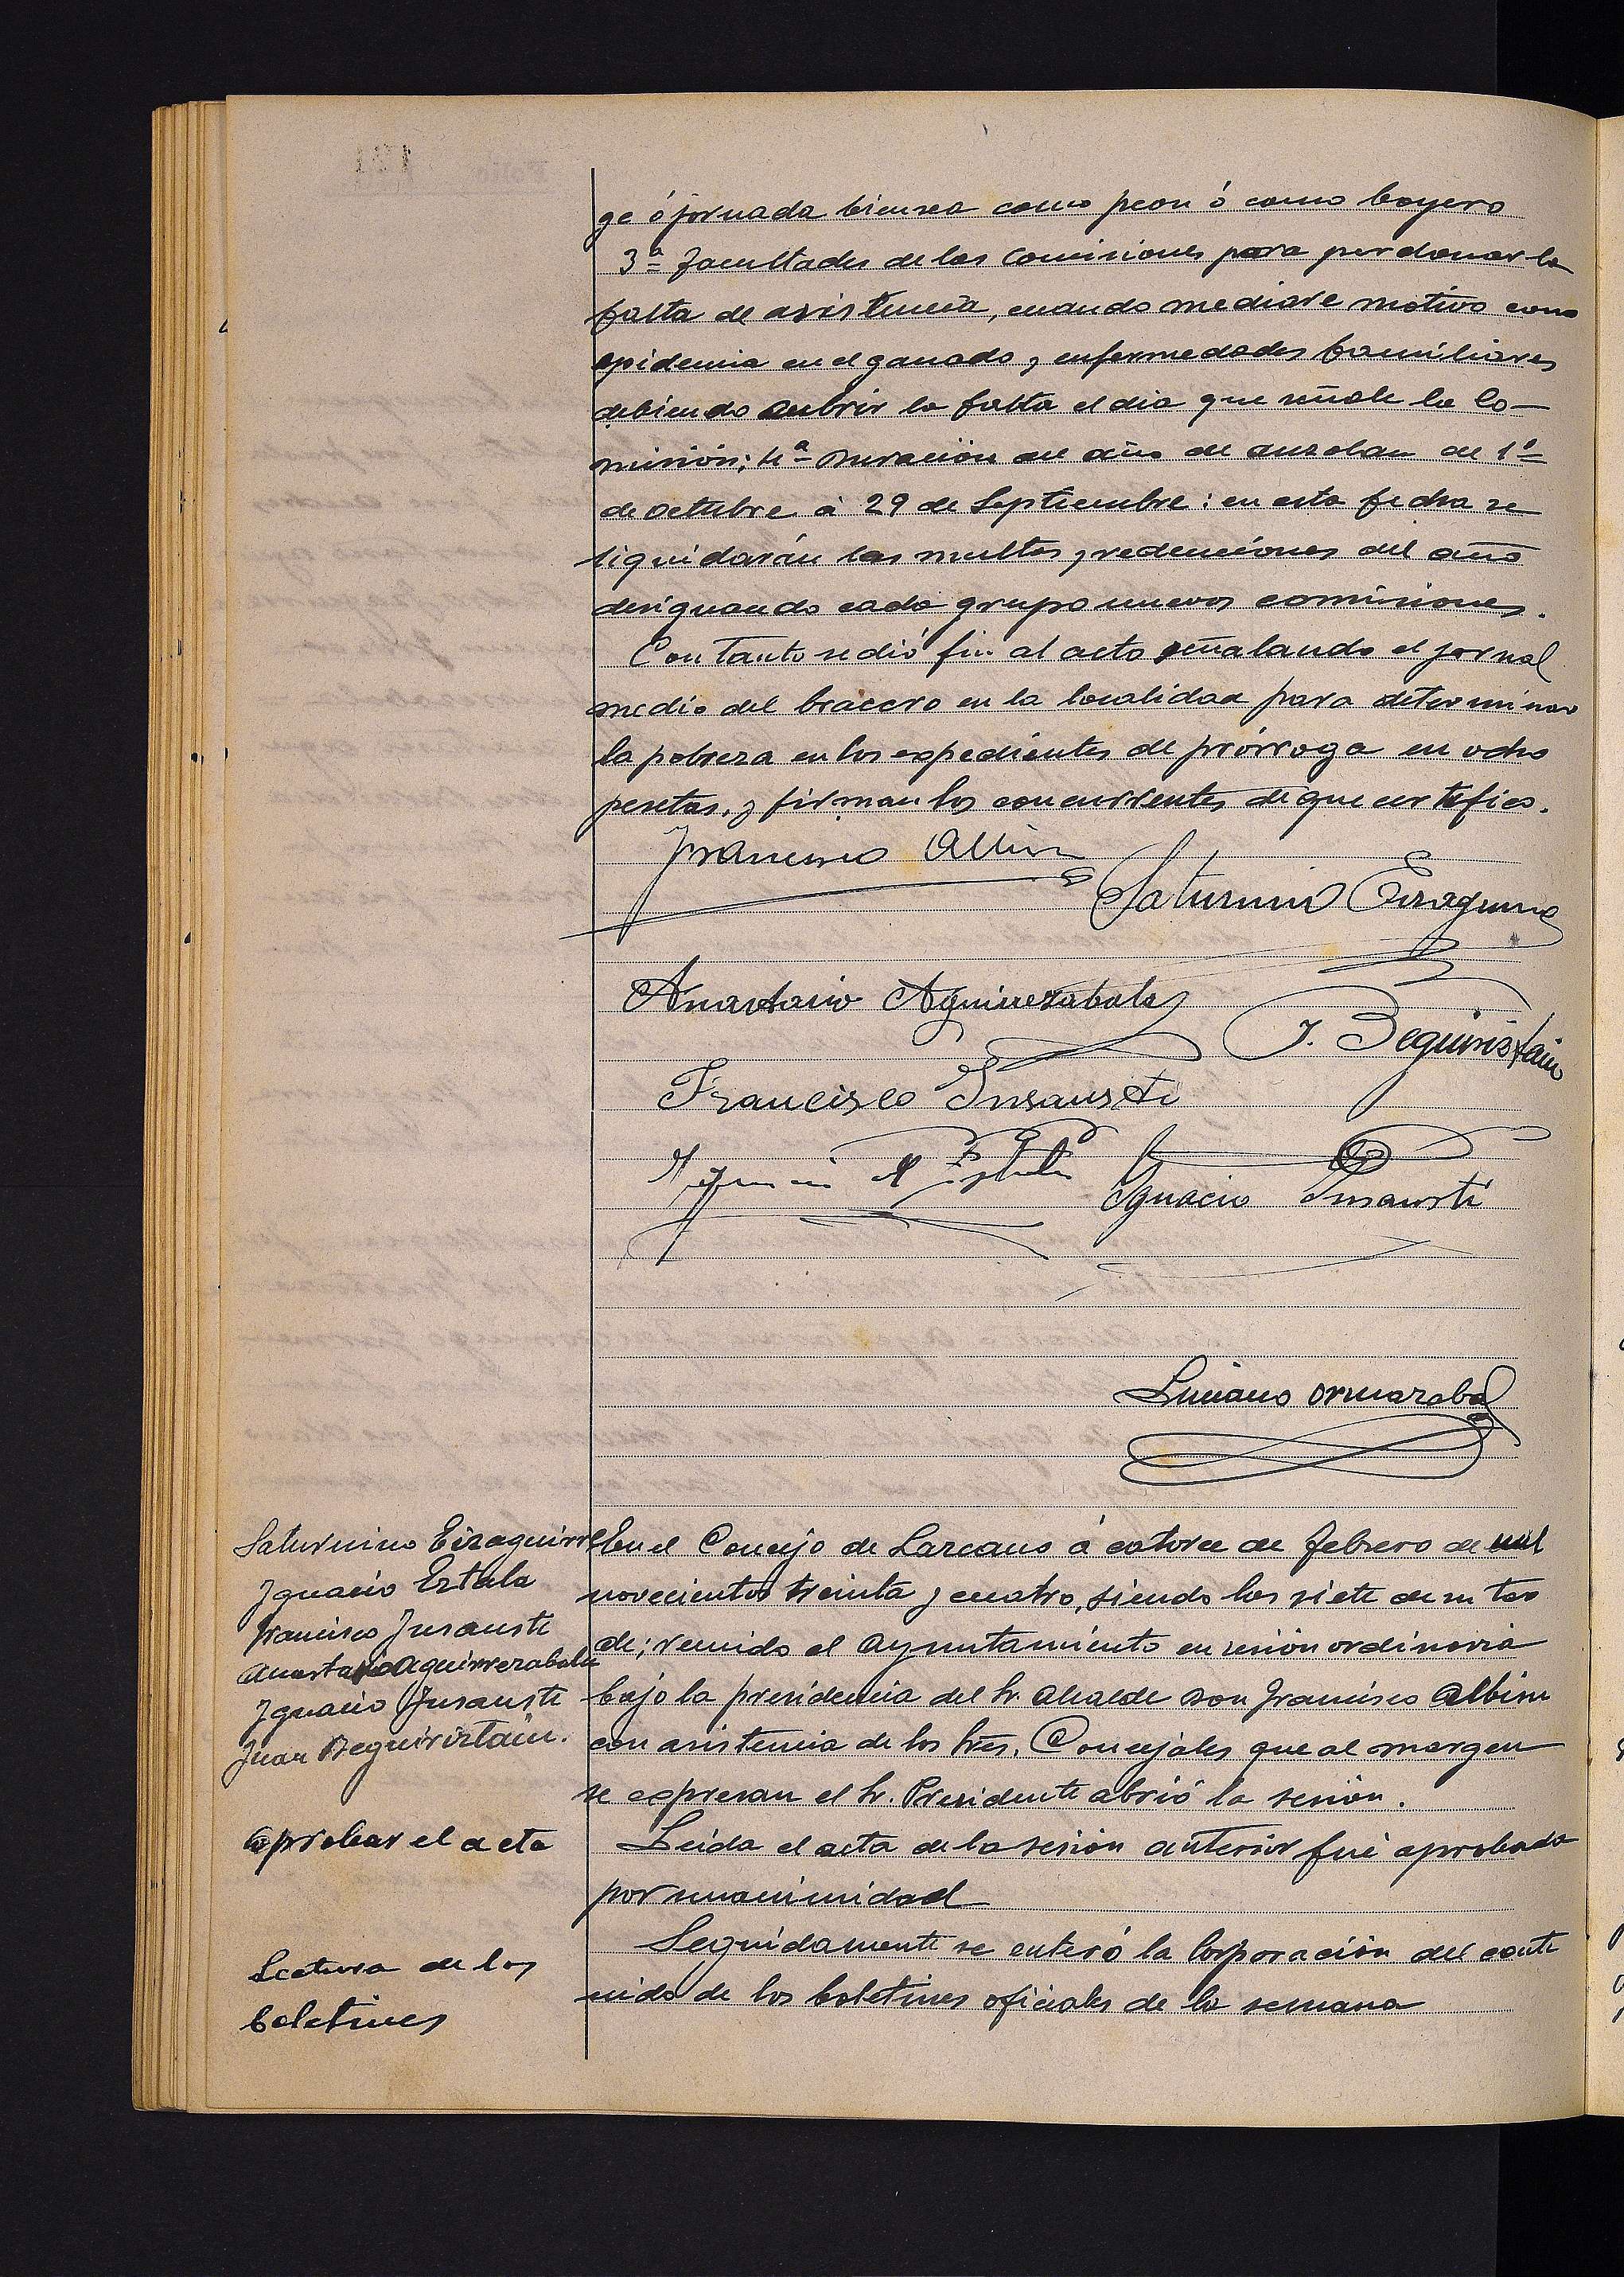 ge ó jornada bien sea como peon ó como boyero
3ª facultades de las Comisiones para perdonar la
falta de asistencia, cuando mediare motivo como
epidemia en el ganado, enfermedades familiares
debiendo cubrir la falta el dia que señale la Co-
misión; 4ª Duración del año de auzolan de 1º
de octubre á 29 de Septiembre: en esta fecha se
liquidarán las multas y redenciones del año
designando cada grupo nuevas comisiones.
Con tanto se dió fin al acto señalando el jornal
medio del bracero en la localidad para determinar
la pobreza en los expedientes de prórroga en ocho
pesetas, y firman los concurrentes de que certifico.
Francisco Albisu
Saturnino Eizaguirre
Anastasio Aguirrezabala
J. Beguiristain
Francisco Insausti
Ignacio Insausti
Luciano Ormazabal
Saturnino Eizaguirre
Ignacio Estala
Francisco Insausti
Anastasio Aguirrezabala
Ignacio Insausti
Juan Beguiristain.
En el Concejo de Lazcano á catorce de febrero de mil
novecientos treinta y cuatro, siendo las siete de su tar
de; reunido el Ayuntamiento en sesión ordinaria
bajo la presidencia del Sr. Alcalde Don Francisco Albisu
con asistencia de los Sres. Concejales que al margen
se expresan el Sr. Presidente abrió la sesión.
Aprobar el acta
Leida el acta de la sesión anterior fué aprobada
por unanimidad
Lectura de los
boletines
Seguidamente se enteró la Corporación del conte
nido de los boletines oficiales de la semana